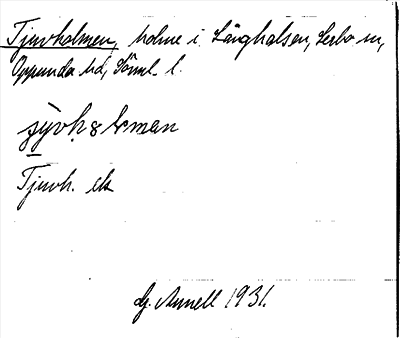 Tjuvholmen, holme i Långhalsen, Lerbo sn,
Oppunda hd, Söml. l.
Tjuvh. ek
G. Annell 1931.